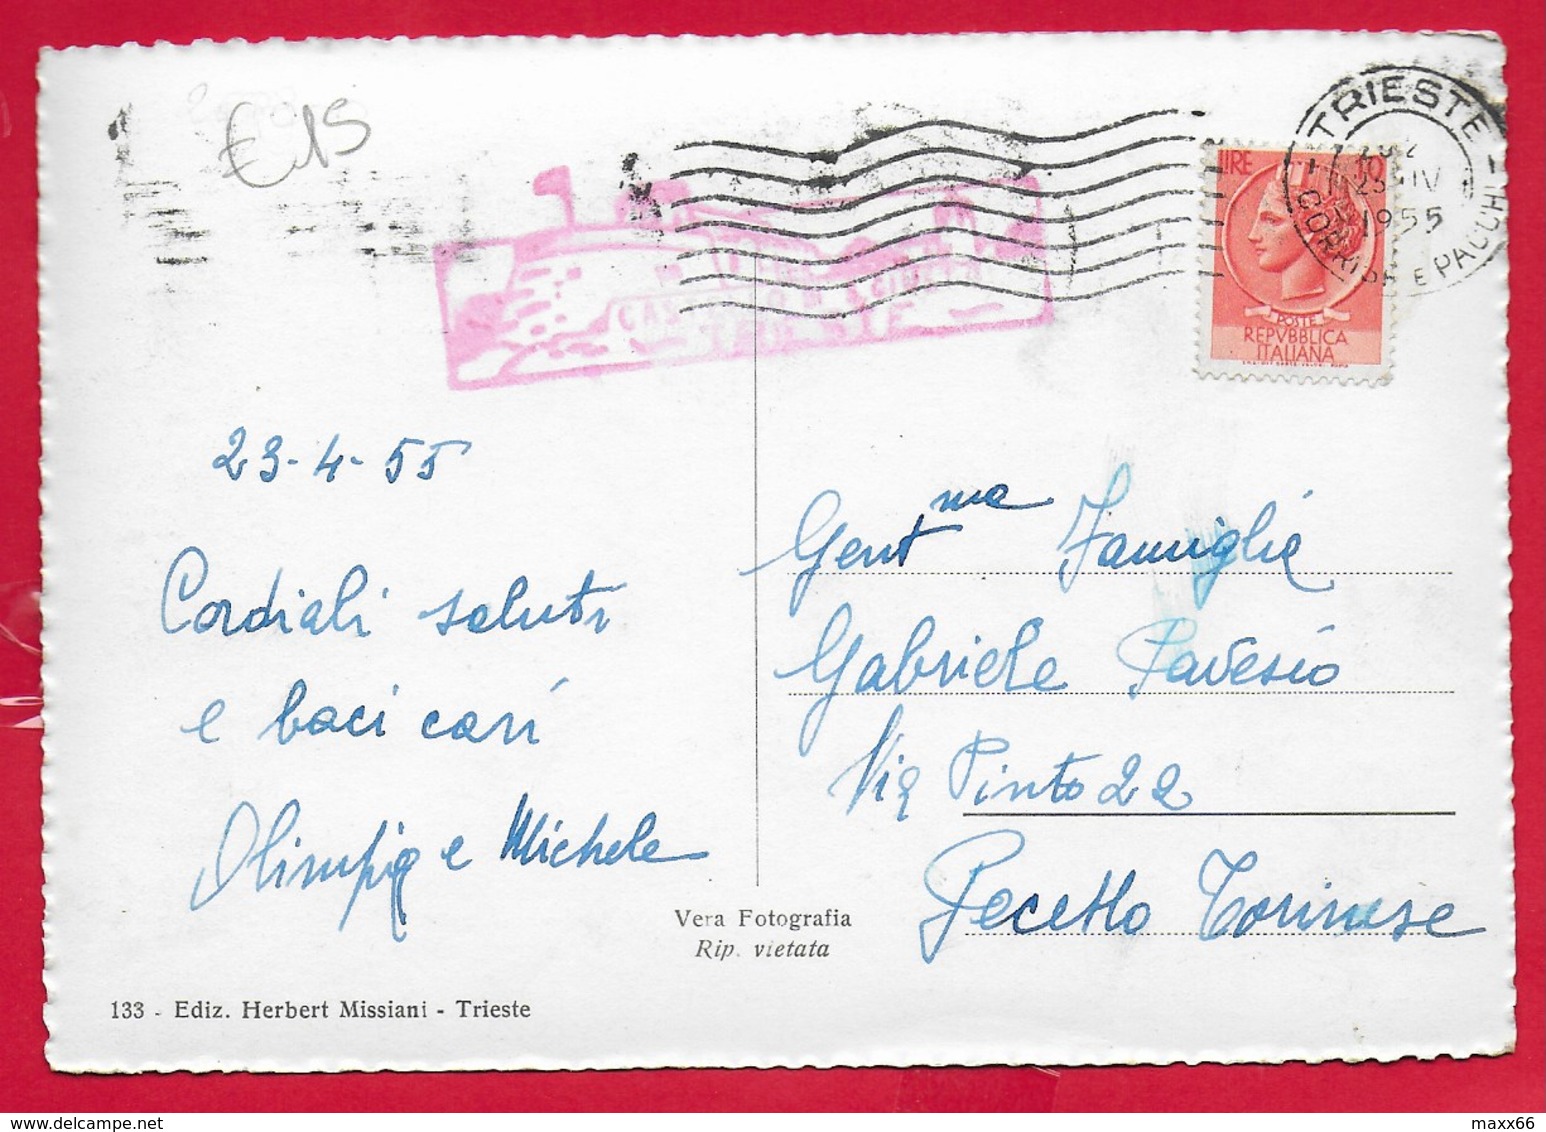 € 15
TRIESTE
25 IV
1955
CORRISP. E PACCHI
LIRE 10
POSTE
REPVBBLICA
ITALIANA
CASTELLO DI S. GIUSTO
23-4-55
Cordiali saluti
e baci cari
Olimpia e Michele
Gent ma Famiglia
Gabriele Pavesio
Via Pinto 22
Pecetto Torinese
Vera Fotografia
Rip. vietata
133 - Ediz. Herbert Missiani - Trieste
maxx66
delcampe.net